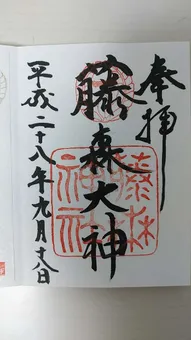 奉拝
藤森大神
藤森
神社
平成二十八年九月十八日